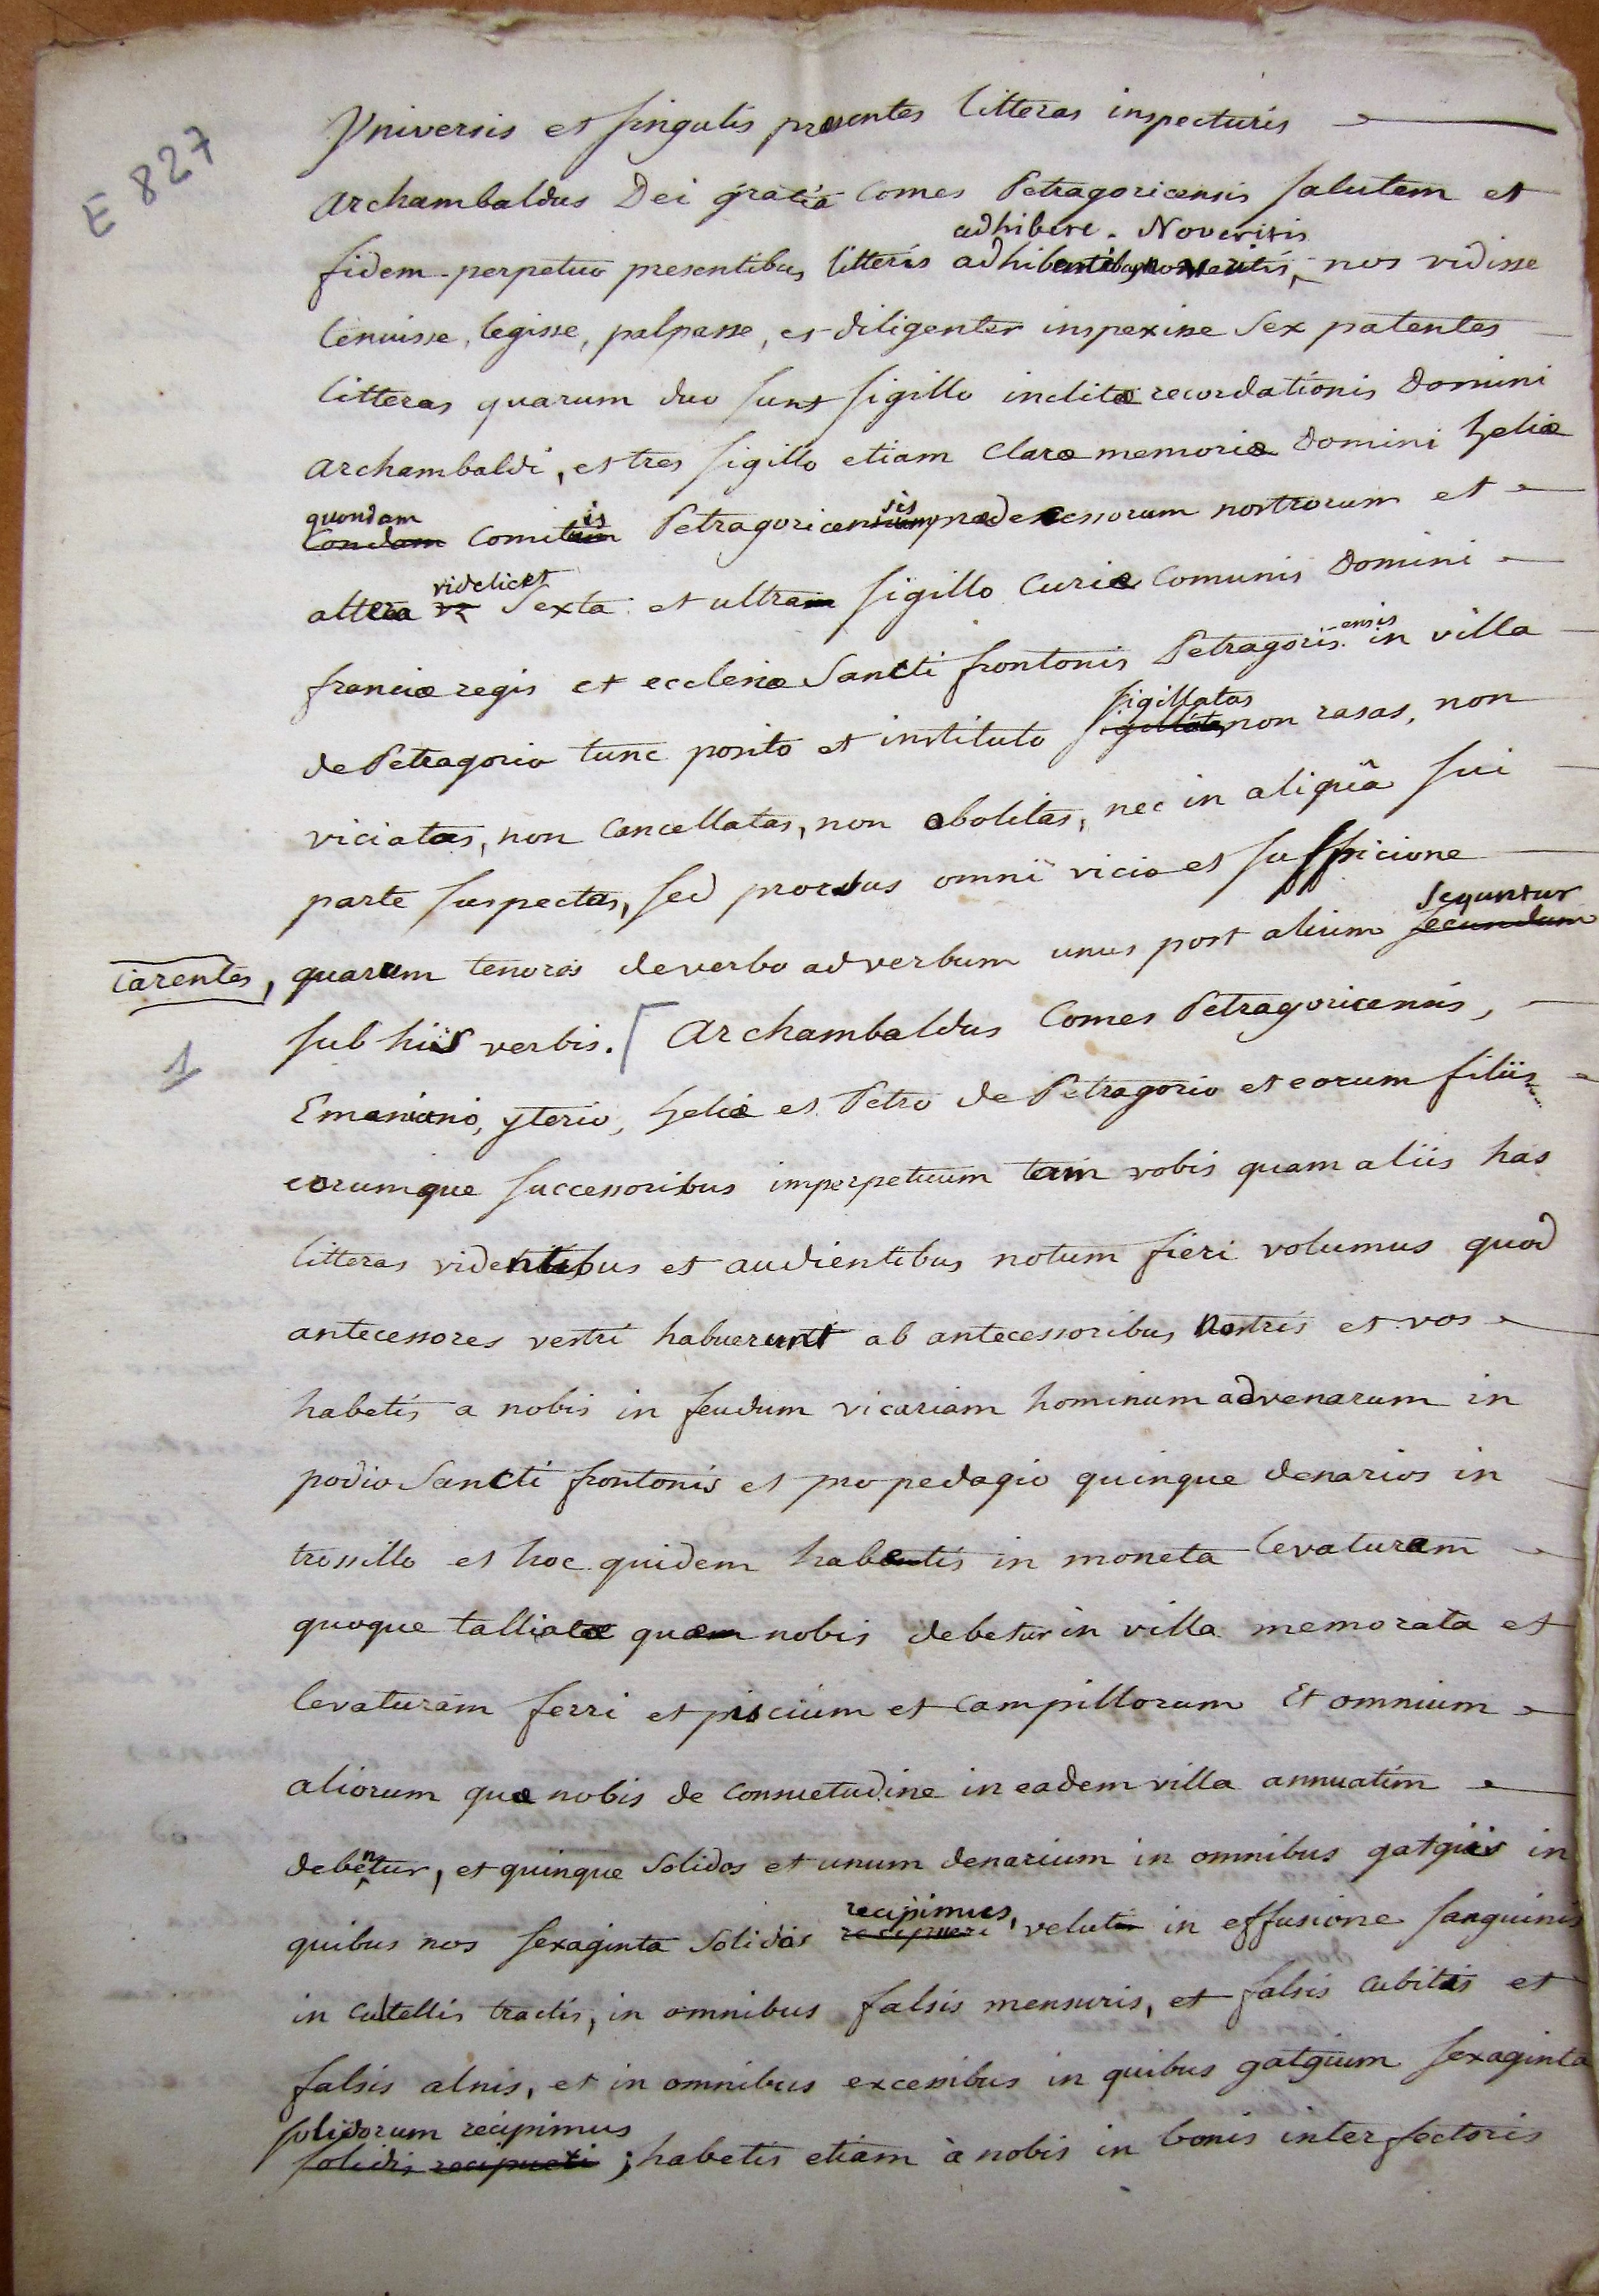 E 827
Vniversis et singulis præsentes litteras inspecturis
archambaldus Dei gratiâ Comes Petragoricensis salutem et
adhibere. Noveritis
fidem perpetuo presentibus litteris nos vidisse
tenuisse, legisse, palpasse, et diligenter inspexisse Sex patentes
litteras quarum duo sunt sigillo inclitæ recordationis Domini
archambaldi, et tres sigillo etiam Claræ memoriæ Domini heliæ
quondam is sis
Condam Comitum Petragoricensium prædecessorum nostrorum et
videlicet
altera Sexta et ultra sigillo Curiæ Comunis Domini
ensis
franciæ regis et ecclesiæ Sancti frontonis Petragoris in villa
sigillatas
de Petragorio tunc posito et instituto sigillata non rasas, non
viciatas, non Cancellatas, non abolitas, nec in aliquâ sui
parte suspectas, sed prorsus omni vicio et suspicione
sequntur
Carentes, quarum tenores de verbo ad verbum unus post alium secundum
1
sub hiis verbis. archambaldus Comes Petragoricensis,
yterio, heliæ et Petro de Petragorio et eorum filiis
eorumque successoribus imperpetuum tam vobis quam aliis has
litteras videntibus et audientibus notum fieri volumus quod
antecessores vestri habuerunt ab antecessoribus nostris et vos
habetis a nobis in feudum vicariam hominum advenarum in
podio Sancti frontonis et pro pedagio quinque denarios in
trossillo et hoc quidem habetis in moneta levaturam
quoque talliatæ quæ nobis debetur in villa memorata et
levaturam ferri et piscium et campillorum Et omnium
aliorum quæ nobis de Consuetudine in eadem villa annuatim
debentur, et quinque Solidos et unum denarium in omnibus gatgiis in
recipimus,
quibus nos sexaginta Solidos velut in effusione sanguinis
in cultellis tractis, in omnibus falsis mensuris, et falsis cubitis et
falsis alnis, et in omnibus excessibus in quibus gatgium sexaginta
solidorum recipimus
solidis ; habetis etiam à nobis in bonis interfectoris